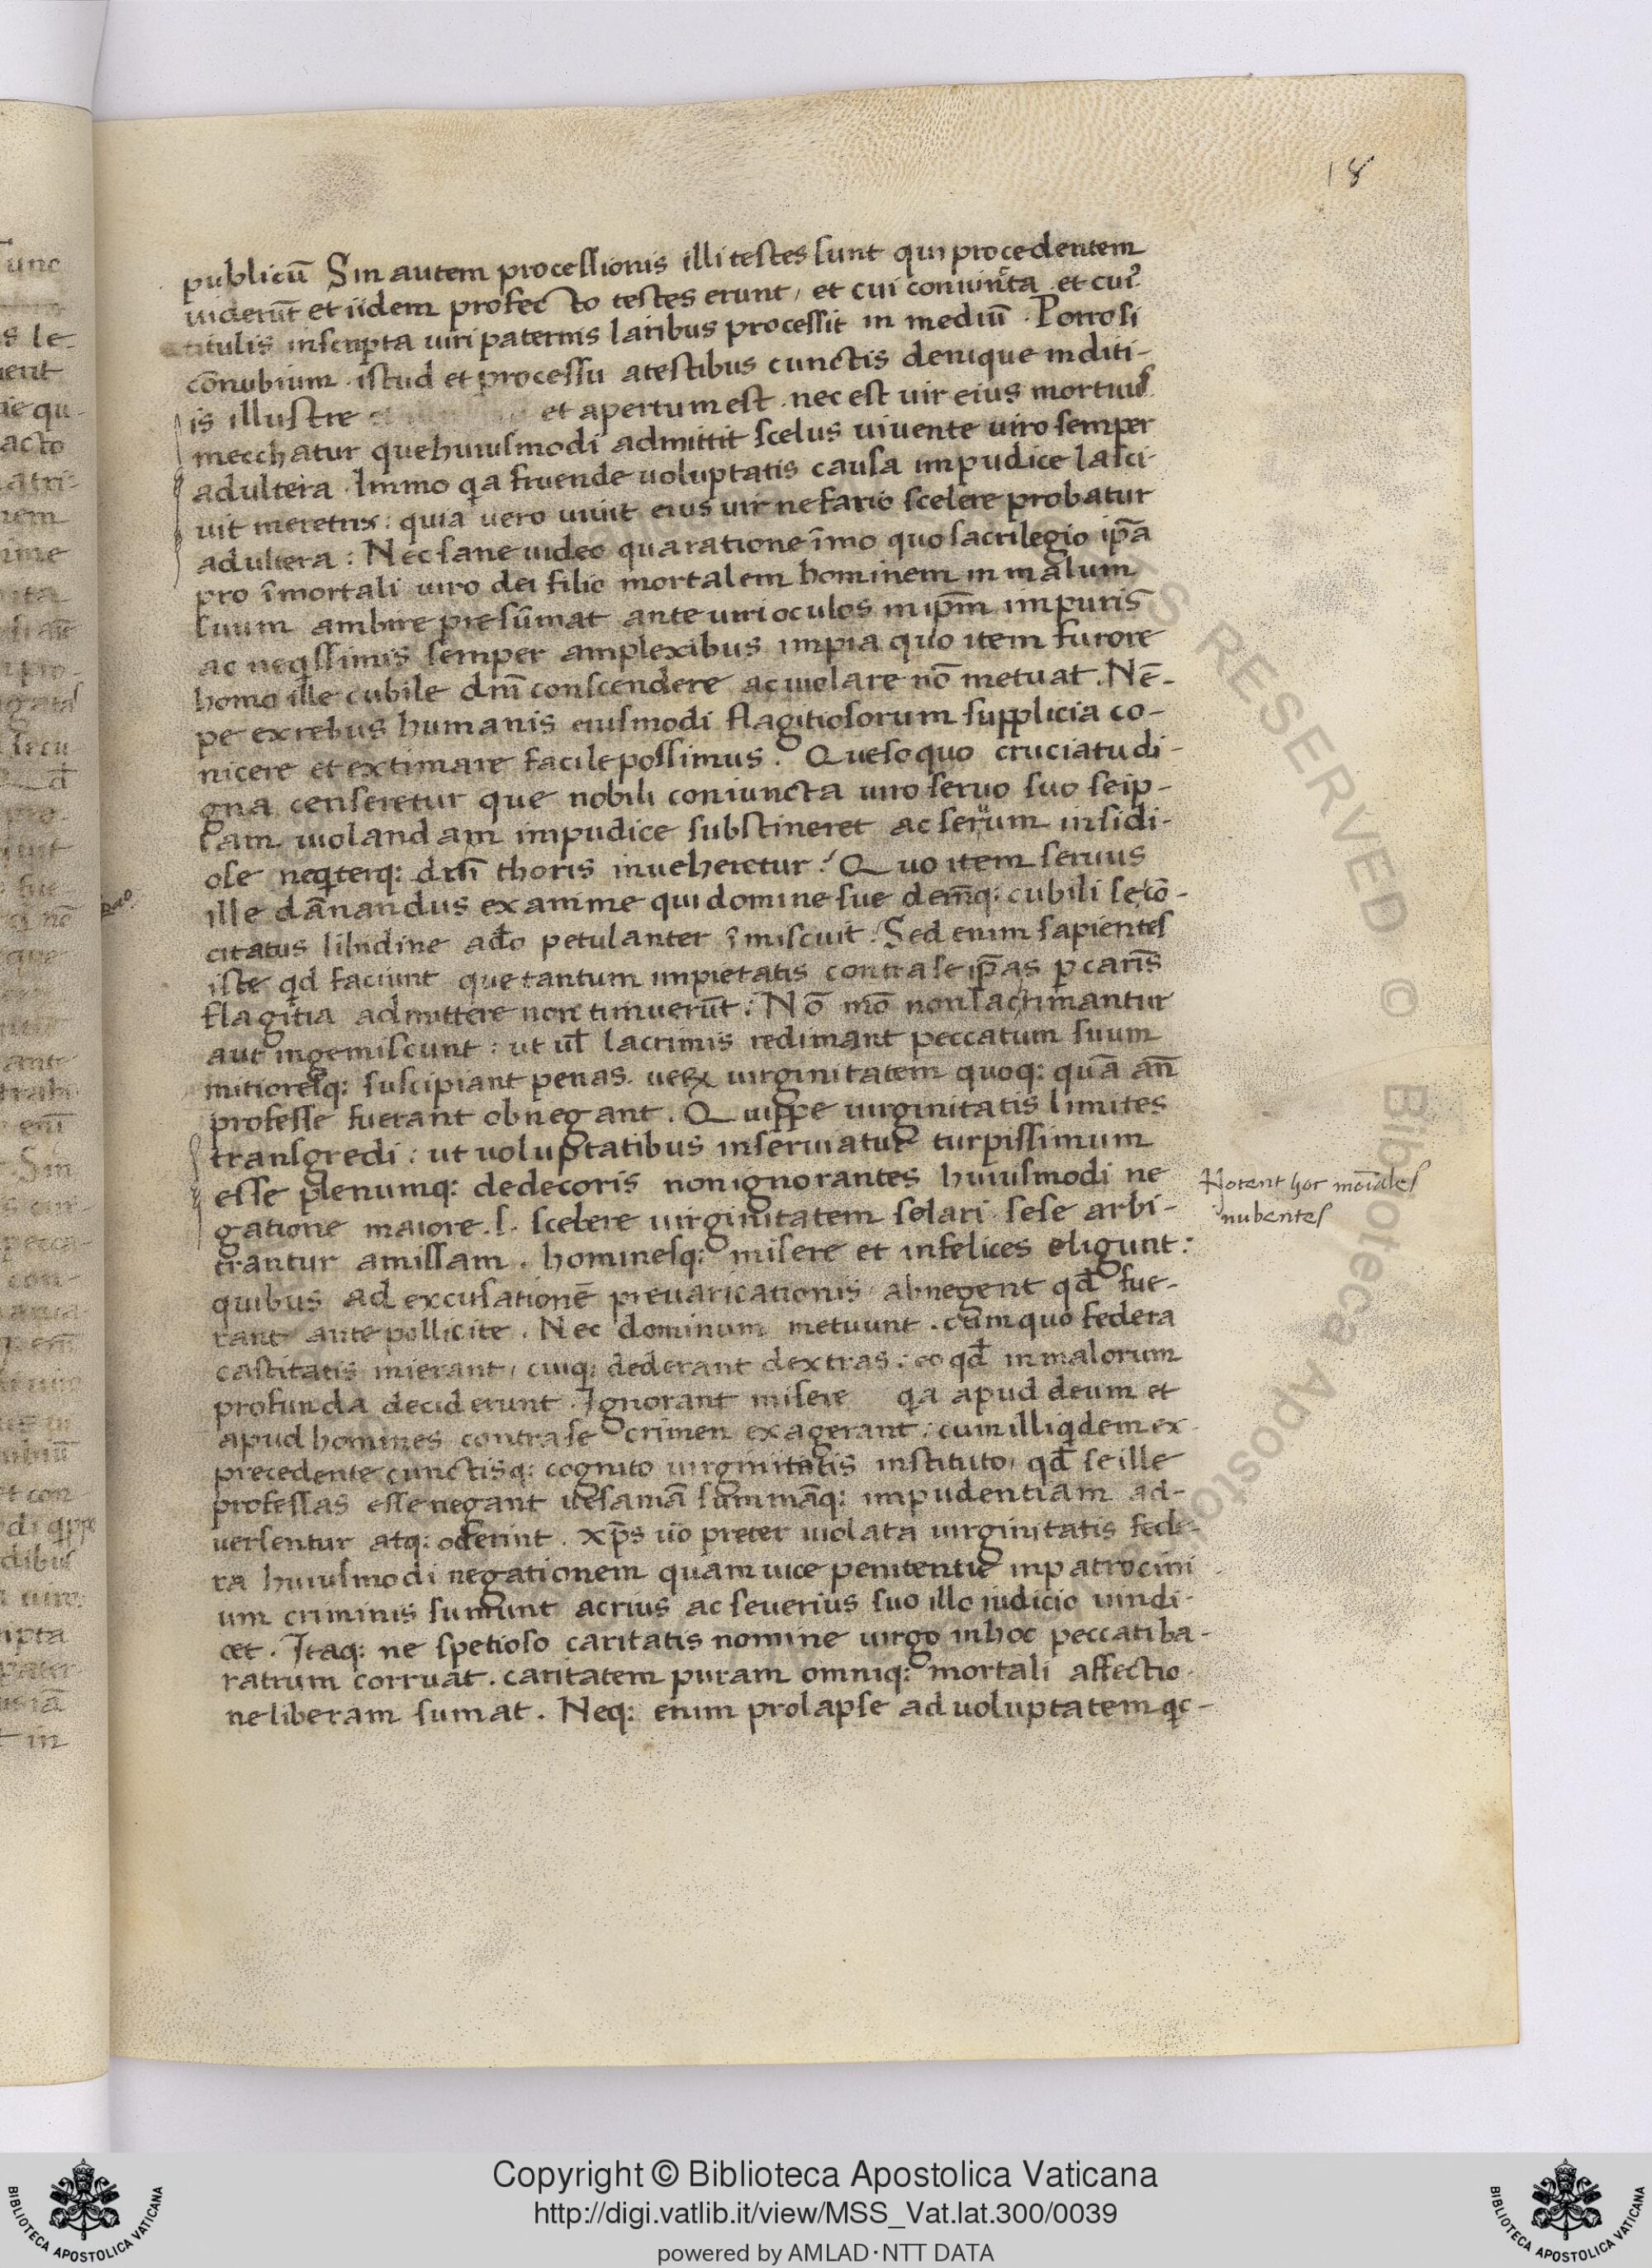 18
publicū Sin autem processionis illi testes sunt qui procedentem
uiderūt et iidem profecto testes erunt, et cui coniuncta et cui⁹
titulis inscripta uiri paternis laribus processit in mediū. Porro si
cōnubium istud et processu a testibus cunctis denique inditi-
is illustre et apertum est. nec est uir eius mortuus
mecchatur que huiusmodi admittit scelus uiuente uiro semper
adultera. Immo qa fruende uoluptatis causa impudice lasci-
uit meretrix: quia uero uiuit eius uir nefario scelere probatur
adultera: Nec sane uideo qua ratione īmo quo sacrilegio ip̄a
pro īmortali uiro dei filio mortalem hominem in malum
suum ambire presūmat ante uiri oculos in ip̄m impuris
ac neqssimis semper amplexibus impia quo item furore
homo ille cubile dn̄i conscendere ac uiolare nō metuat. Nē-
pe ex rebus humanis eiusmodi flagitiosorum supplicia co-
nicere et extimare facile possimus. Queso quo cruciatu di-
gna censeretur que nobili coniuncta uiro seruo suo seip-
sam uiolandam impudice substineret ac seruum insidi-
ose neqterq: dn̄i thoris inueheretur? Quo item seruus
ille dānandus examine qui domine sue demq: cubili se cō-
citatus libidine adeo petulanter īmiscuit. Sed enim sapientes
iste qd faciunt que tantum impietatis contra se ip̄as p caris
flagitia admittere non timuerūt: Nō mō non lacrimantur
aut ingemiscunt: ut ul̄ lacrimis redimant peccatum suum
mitioresq: suscipiant penas. uerꝝ uirginitatem quoq: quā an̄
professe fuerant obnegant. Quippe uirginitatis limites
transgredi: ut uoluptatibus inseruiatur turpissimum
esse plenumq: dedecoris non ignorantes huiusmodi ne
gatione maiore .s. scelere uirginitatem solari sese arbi-
trantur amissam. hominesq: misere et infelices eligunt:
quibus ad excusationē preuaricationis abnegent qd̄ fue-
rant ante pollicite. Nec dominum metuunt. cum quo federa
castitatis inierant, cuiq: dederant dextras: eo qd̄ in malorum
profunda deciderunt. Ignorant misere qa apud deum et
apud homines contra se crimen exagerant: cum illi qdem ex
precedente cunctisq: cognito uirginitatis instituto, qd̄ se ille
professas esse negant uesamā summāq: impudentiam ad-
uersentur atq: oderint. xp̄s uō preter uiolata uirginitatis fede-
ra huiusmodi negationem quam uice penitentie in patrocini
um criminis sumunt acrius ac seuerius suo illo iudicio uindi-
cet. Itaq: ne spetioso caritatis nomine uirgo in hoc peccati ba-
ratrum corruat. caritatem puram omniq: mortali affectio-
ne liberam sumat. Neq: enim prolapse ad uoluptatem qc-
Notent hoc mōiales
nubentes
RESERVED © Biblioteca Apostolica
Copyright © Biblioteca Apostolica Vaticana
http://digi.vatlib.it/view/MSS_Vat.lat.300/0039
powered by AMLAD·NTT DATA
BIBLIOTECA APOSTOLICA VATICANA
BIBLIOTECA APOSTOLICA VATICANA